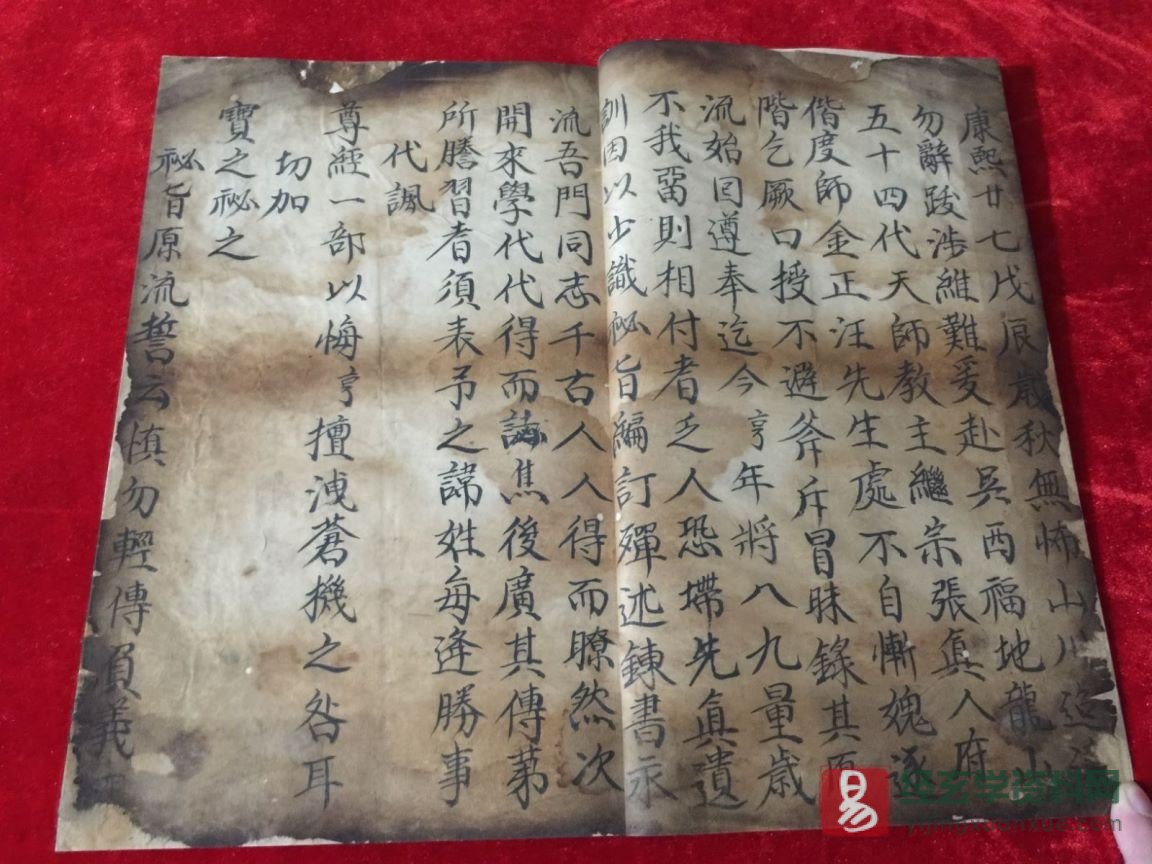 康熙廿七戊辰歲秋無怖山川迢
勿辭跋涉維難爰赴吳西福地龍山
五十四代天師教主繼宗張真人府
偕度師金正汪先生處不自慚媿逐
階乞厥口授不避斧斥冒昧錄其
流始囙遵奉迄今亨年將八九量歲
不我畱則相付者乏人恐墆先眞遺
訓因以少識祕旨編訂殫述錬書永
流吾門同志千古人人得而瞭然次
開來學代代得而誌焦後廣其傳苐
所謄習者須表予之諱姓每逢勝事
代諷
尊經一部以悔亨擅洩蒼機之咎耳
切加
寶之祕之
祕旨原流誓云慎勿輕傳負義
易
易玄学资料网